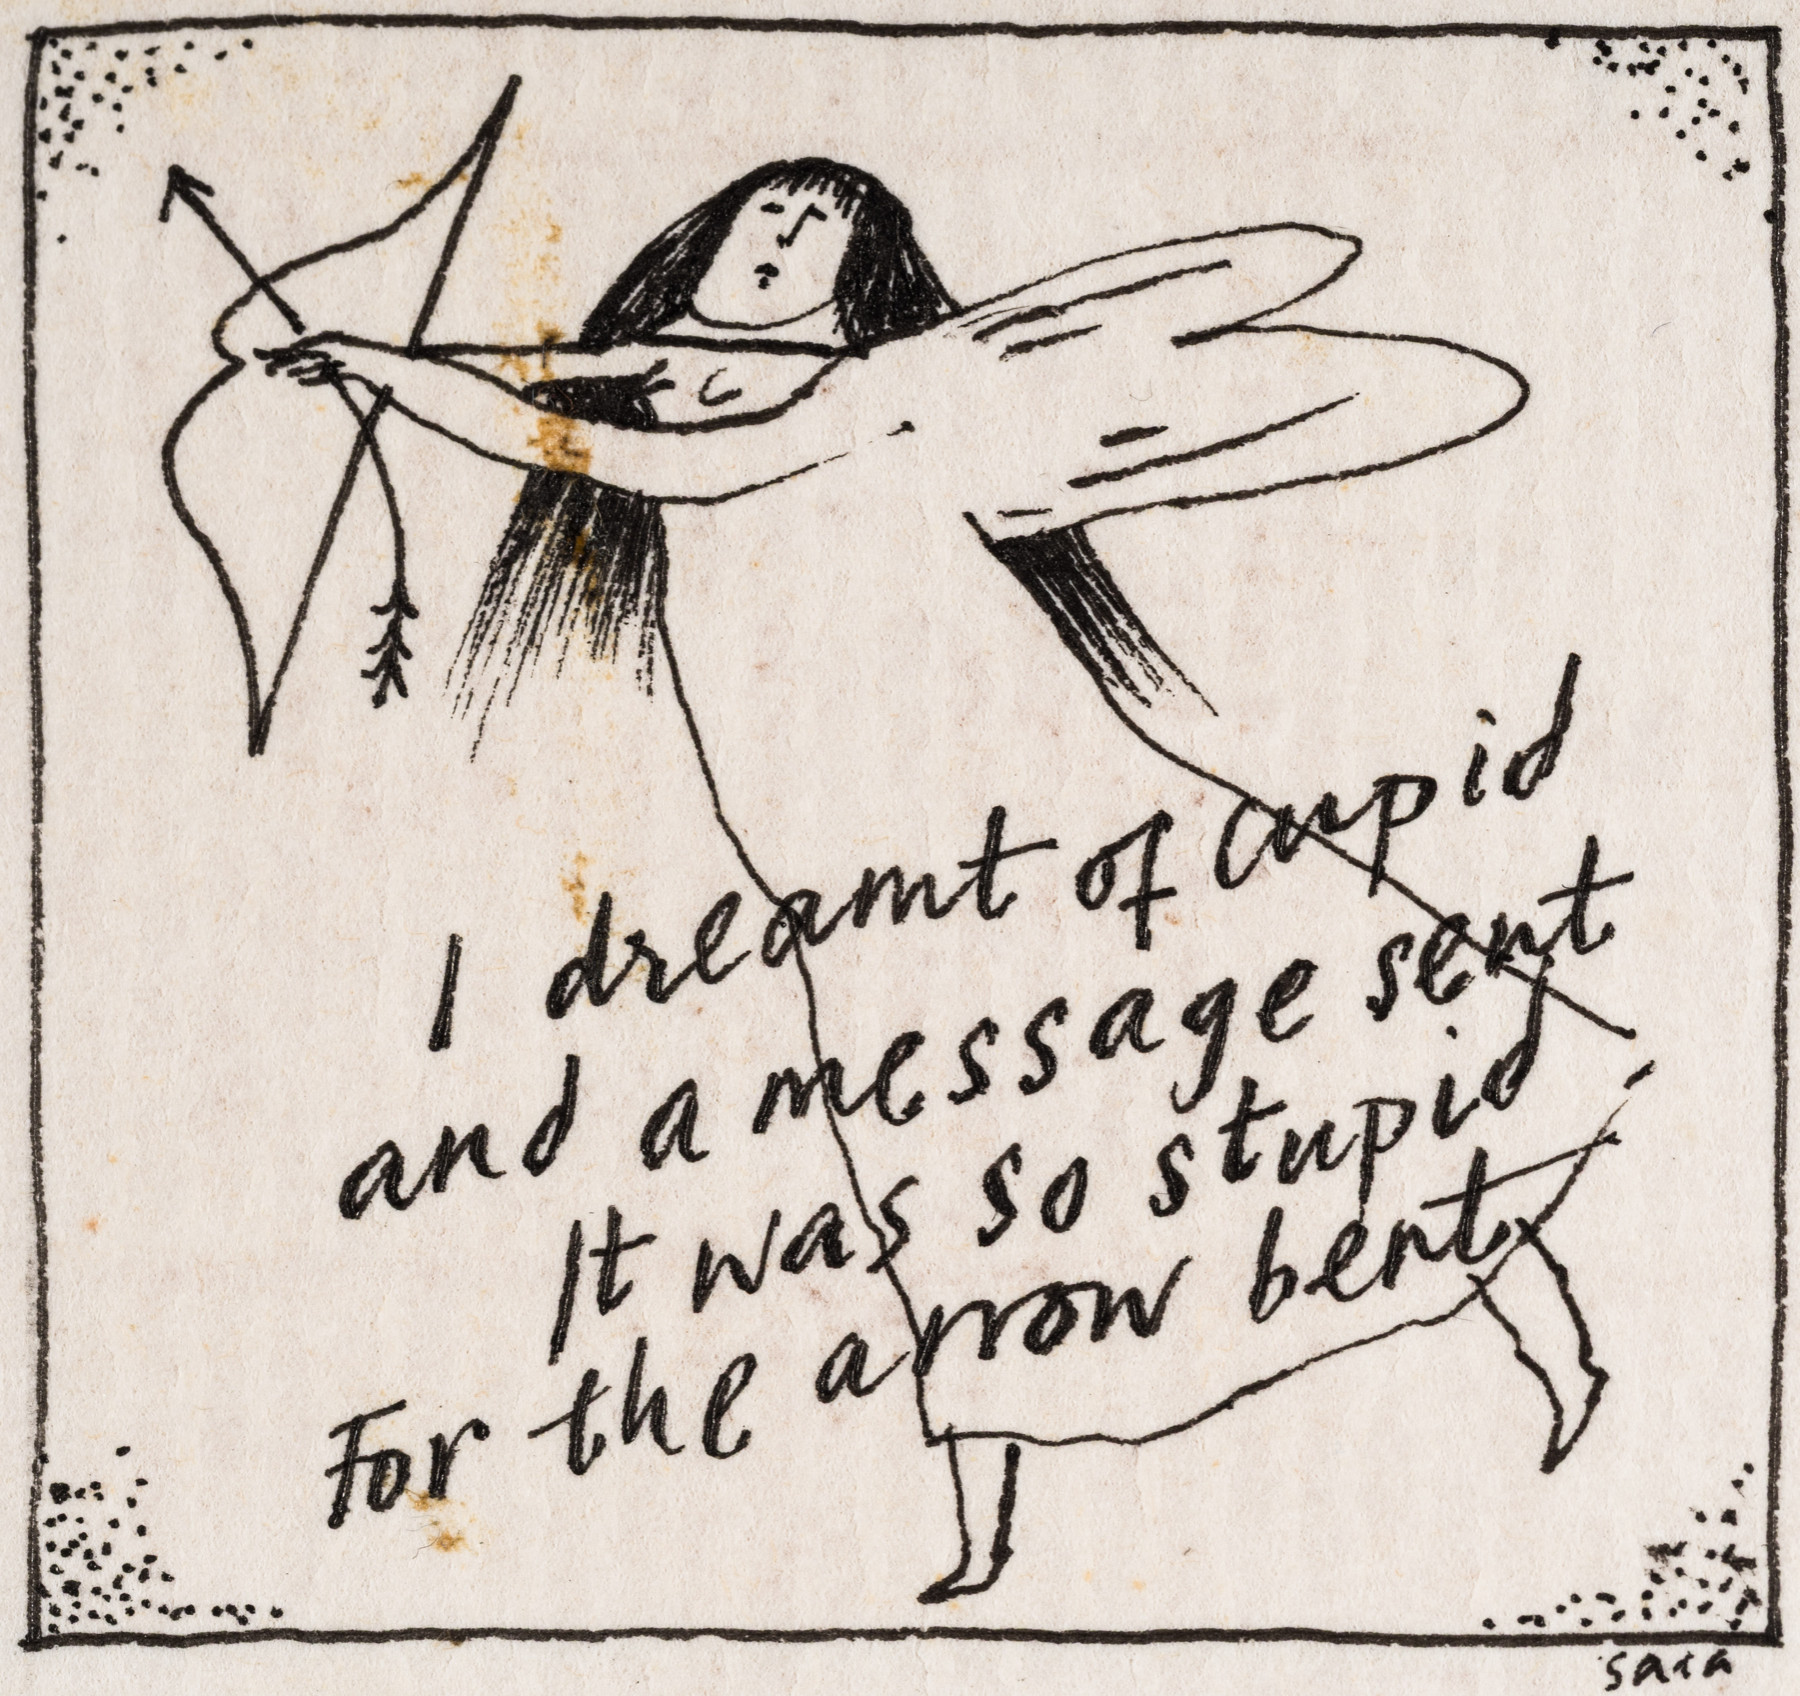 I dreamt of cupid
and a message sent
It was so stupid
For the arrow bent
sara